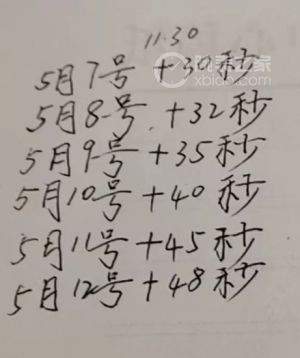 11.30
5月7号 +30秒
5月8号 +32秒
5月9号 +35秒
5月10号 +40秒
5月11号 +45秒
5月12号 +48秒
xbiao.com